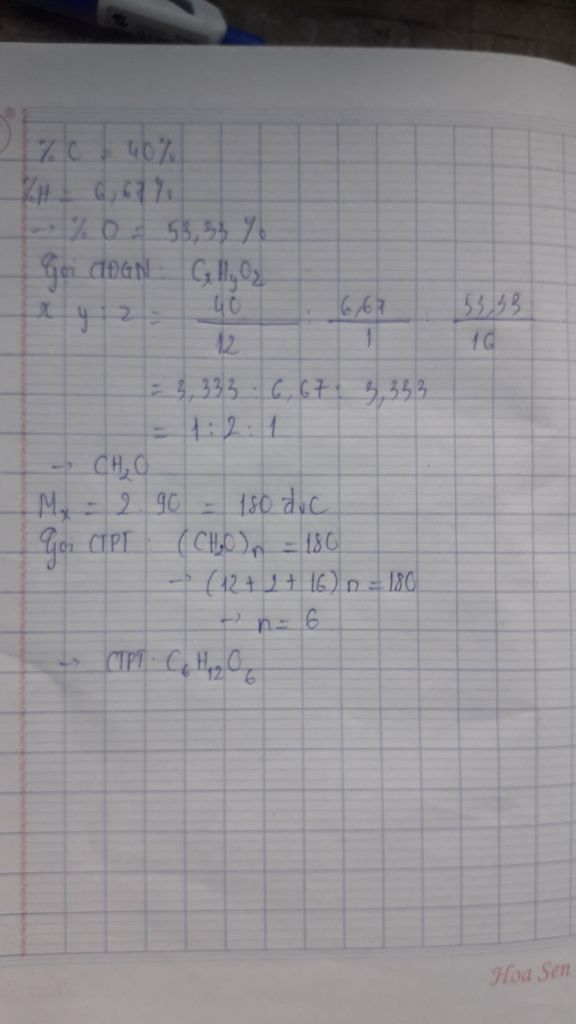 % C = 40%
%H = 6,67%
→ % O = 53,33 %
Gọi CTĐGN: CxHyOz
x y : z = 40/12 : 6,67/1 : 53,33/16
= 3,333 : 6,67 : 3,333
= 1 : 2 : 1
→ CH₂O
Mx = 2 . 90 = 180 đvC
Gọi CTPT : (CH₂O)n = 180
→ (12 + 2 + 16) n = 180
→ n = 6
→ CTPT : C₆H₁₂O₆
Hoa Sen